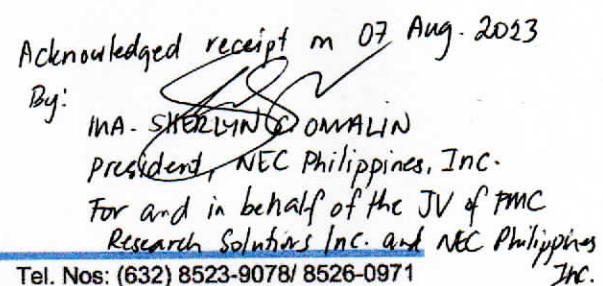 Acknowledged receipt on 07 Aug. 2023
By:
MA. SHERLYN C. OMALIN
President, NEC Philippines, Inc.
For and in behalf of the JV of FMC
Research Solutions Inc. and NEC Philippines
Inc.
Tel. Nos: (632) 8523-9078/ 8526-0971